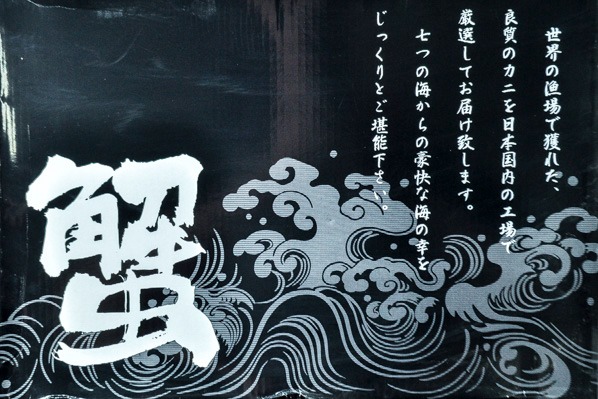 世界の漁場で獲れた、
良質のカニを日本国内の工場で
厳選してお届け致します。
七つの海からの豪快な海の幸を
じっくりとご堪能下さい。
蟹